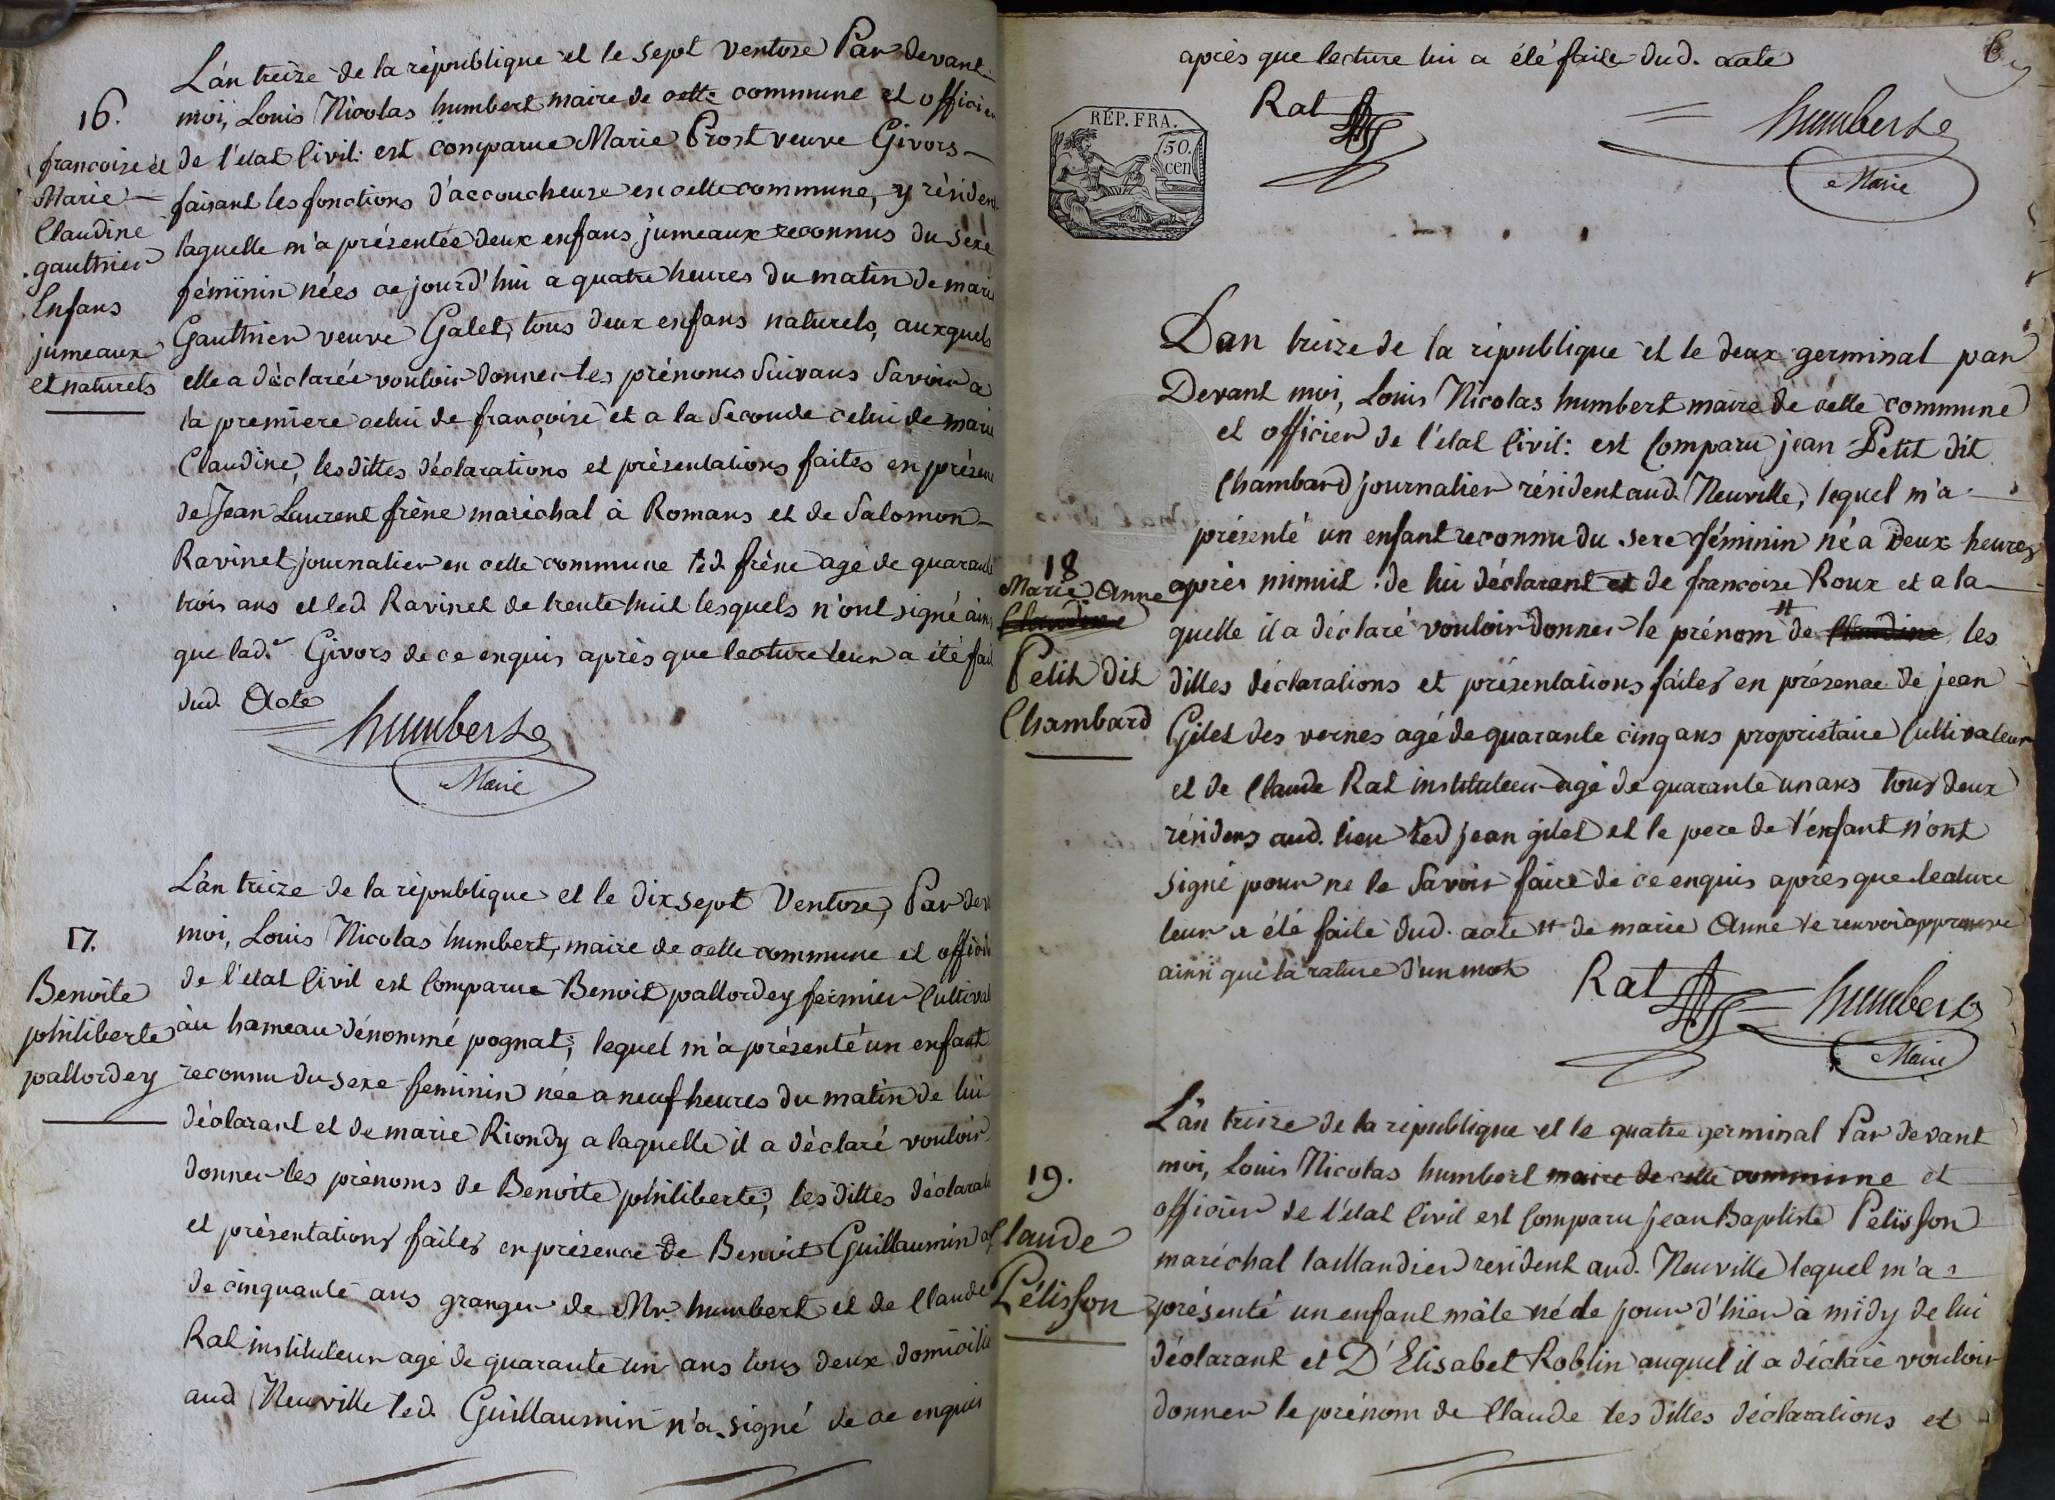 16.
francoise et
Marie
Claudine
gauthier
Enfans
jumeaux
et naturels
L'an treize de la république et le sept ventose Par devant
moi, Louis Nicolas humbert maire de cette commune et officier
de l'état Civil: est comparue Marie Prost veuve Givors
faisant les fonctions d'accoucheuse en cette commune, y résident
laquelle m'a présentée deux enfans jumeaux reconnus du sexe
féminin nées ce jourd'hui a quatre heures du matin de marie
Gauthier veuve Galet, tous deux enfans naturels, auxquels
elle a déclarée vouloir donner les prénoms Suivans Savoir a
la premiere celui de françoise et a la Seconde celui de marie
Claudine, les dittes déclarations et présentations faites en présen
de Jean Laurent frène maréchal à Romans et de Salomon
Ravinet journalier en cette commune led. frène agé de quarante
trois ans et led. Ravinet de trente huit lesquels n'ont signé ains
que lad.e Givors de ce enquis après que lecture leur a été fait
dud. Acte
humbert
Maire
17.
Benoite
philiberte
pallordey
L'an treize de la république et le dix sept Ventose, Par dev
moi, Louis Nicolas humbert, maire de cette commune et officie
de l'état Civil est Comparue Benoit pallordey fermier Cultivat
au hameau dénommé pognat; lequel m'a présenté un enfant
reconnu du sexe feminin née a neuf heures du matin de lui
déclarant et de marie Riondy a laquelle il a déclaré vouloir
donner les prénoms de Benoite philiberte; les dittes déclarat
et présentations faites en présence de Benoit Guillaumin a
de cinquante ans granger de Mr. humbert et de Claude
Rat instituteur agé de quarante un ans tous deux domicilié
aud. Neuville led. Guillaumin n'a signé de ce enquis
6
après que lecture lui a été faite dud. acte
RÉP. FRA.
50.
cen
Rat
humbert
Maire
18
Marie Anne
Claudine
Petit dit
Chambard
L'an treize de la république et le deux germinal par
Devant moi, Louis Nicolas humbert maire de cette commune
et officier de l'état Civil: est Comparu jean Petit dit
Chambard journalier résident aud. Neuville, lequel m'a
présenté un enfant reconnu du sexe féminin né a Deux heures
après minuit de lui déclarant et de francoise Roux et a la
quelle il a déclaré vouloir donner le prénom # de Claudine les
dittes déclarations et présentations faites en présence de jean
Gilet des vernes agé de quarante cinq ans proprietaire Cultivateur
et de Claude Rat instituteur agé de quarante un ans tous deux
résidens aud. lieu led jean gilet et le pere de l'enfant n'ont
signé pour ne le Savoir faire de ce enquis après que lecture
leur a été faite dud. acte # de marie Anne le renvoi approuvé
ainsi que la rature d'un mot
Rat
humbert
Maire
19.
Claude
Pélisson
L'an treize de la république et le quatre germinal Par devant
moi, Louis Nicolas humbert maire de cette commune et
officier de l'état Civil est Comparu jean Baptiste Pelisson
maréchal taillandier resident aud. Neuville lequel m'a
présenté un enfant mâle né le jour d'hier à midy de lui
déclarant et D'Elisabet Roblin auquel il a déclaré vouloir
donner le prénom de Claude les dittes déclarations et